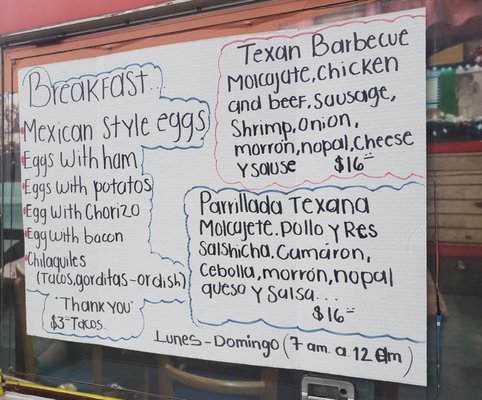 Breakfast..
Mexican Style eggs
Eggs with ham
Eggs with potatos
Egg with Chorizo
Egg with bacon
Chilaquiles
(Tacos, gorditas-or dish)
"Thank you"
$3= Tacos.
Texan Barbecue
Molcajate, Chicken
and beef, Sausage,
Shrimp, onion,
morrón, nopal, Cheese
y sause $16=
Parrillada Texana
Molcajete. Pollo y Res
Salshicha, Camáron,
Cebolla, morrón, nopal
queso y Salsa...
$16=
Lunes - Domingo (7 am. a 12 am)